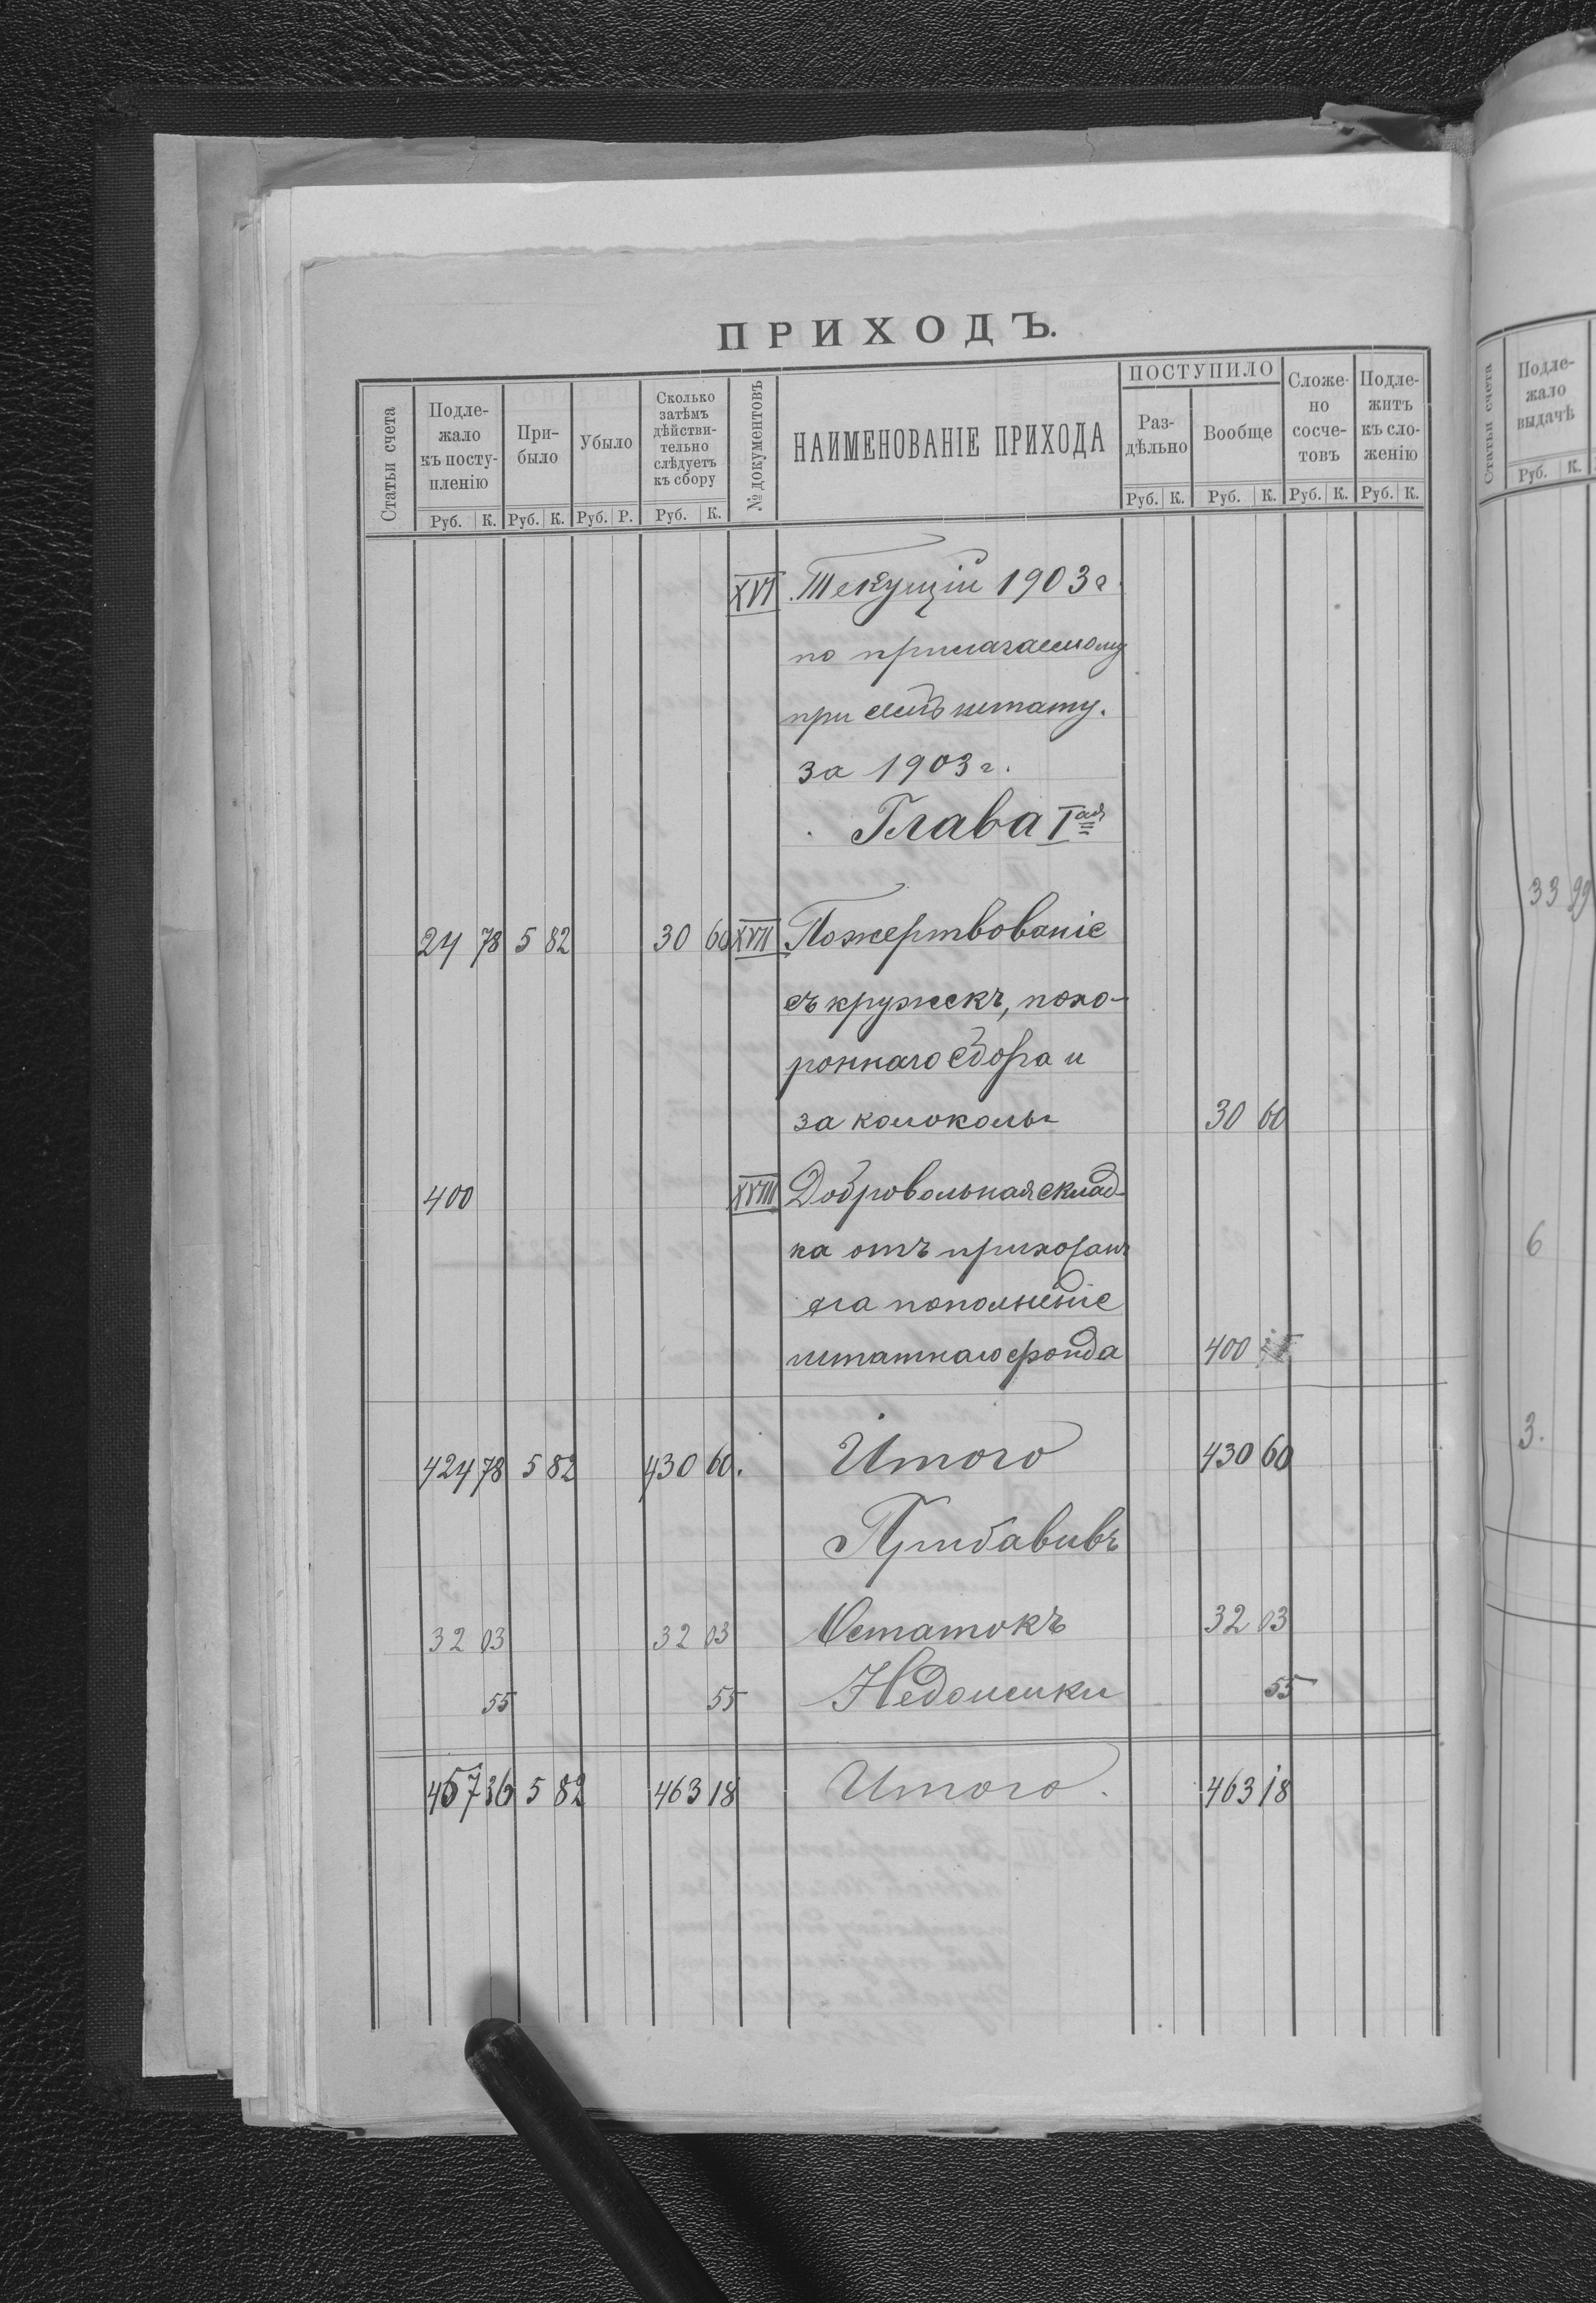 ПРИХОДЪ.
Статьи счета
Подле-
жало
къ посту-
пленію
При-
было
Убыло
Сколько
затѣмъ
дѣйстви-
тельно
слѣдуетъ
къ сбору
№ документовъ
НАИМЕНОВАНІЕ ПРИХОДА
ПОСТУПИЛО
Раз-
дѣльно
Вообще
Сложе-
но
сосче-
товъ
Подле-
житъ
къ сло-
женію
Руб. К. Руб. К. Руб. Р. Руб. К. Руб. К. Руб. К. Руб. К. Руб. К.
XVI Текущій 1903 г.
по прилагаемому
при семъ штату.
за 1903 г.
Глава Iая
24 78 5 82 30 60 XVII Пожертвованіе
съ кружекъ, похо-
роннаго сбора и
за колоколъ 30 60
400 XVIII Добровольная склад-
ка отъ прихожанъ
на пополненіе
штатнаго фонда 400
424 78 5 82 430 60. Итого 430 60
Прибавивъ
32 03 32 03 Остатокъ 32 03
55 55 Недоимки 55
457 36 5 82 463 18 Итого. 463 18
Статьи счета
Подле-
жало
выдачѣ
Руб. К.
33 99
6
3.